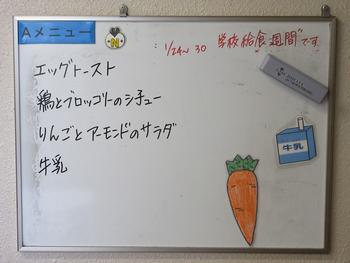 Aメニュー
N
1/24~30 学校給食週間"です
エッグトースト
鶏とブロッコリーのシチュー
りんごとアーモンドのサラダ
牛乳
牛乳